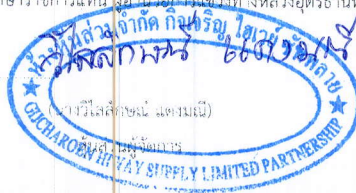 ห้างหุ้นส่วนจำกัด กิจเจริญ ไฮเวย์ ซัพพลาย
วิไลลักษณ์ แดงมณี
(นางวิไลลักษณ์ แดงมณี)
หุ้นส่วนผู้จัดการ
GIJCHAROEN HI-WAY SUPPLY LIMITED PARTNERSHIP